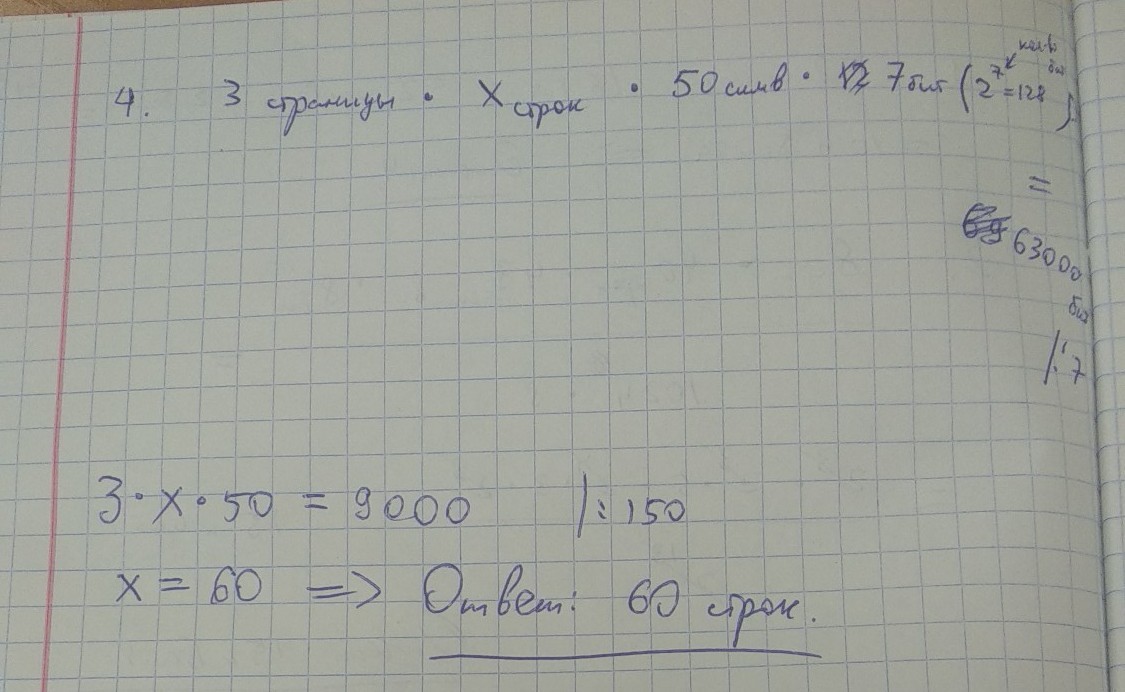 4. 3 страницы · x строк · 50 симв · 7 бит (2⁷=128)
кол-во бит
=
63000
бит
/:7
3·x·50 = 9000 /:150
x = 60 => Ответ: 60 строк.